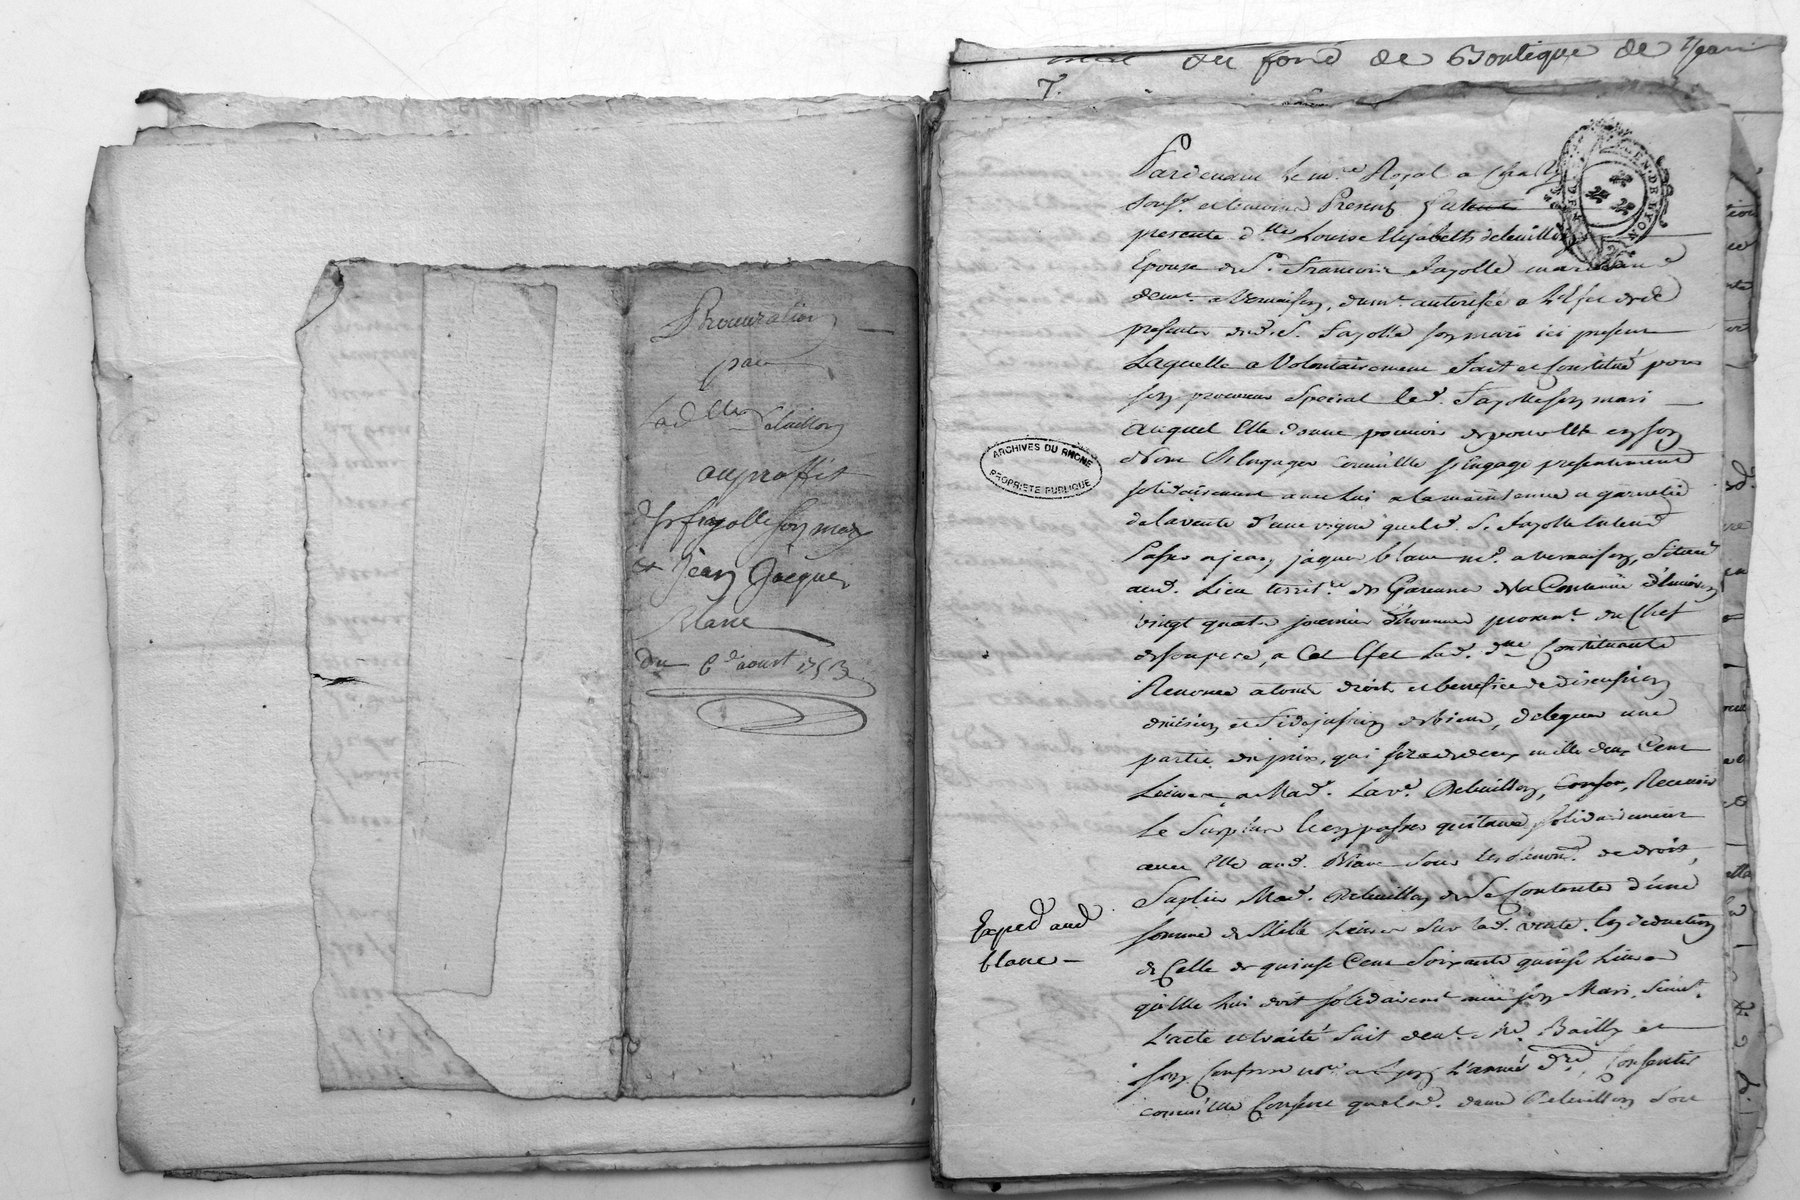 Procuration
par
lad.lle Deleuillon
au proffit
du sr fayolle son mary
et Jean Jacques
Blanc
Du 6 d'aoust 1753
du fond de Boutique de Jean
7.
Pardevant le no.re Royal a Charly
sous.é et temoins Presents
presente d.lle Louise Elisabeth deleuillon
Epouse de S.r Francois Fayolle marchand
dem.t a Vernaison, dument autorisée a l'Efet des
presentes dud. S. Fayolle son mari ici present
Laquelle a Volontairement Fait et Constitué pour
son procureur Special led. Fayolle son mari
auquel Elle donne pouvoir de pour Elle en son
Nom S'Engager comm'Elle s'Engage presentement
solidairement avec lui a la maintenue et garantie
de la vente d'une vigne que led. S. Fayolle entend
Passer a jean jaques blanc m.d a vernaison, Situeé
aud. Lieu territ.re de Garenne de la Contenue d'Environ
vingt quatre journées d'homme proven.t du Chef
de son pere, a Cet Efet Lad. d.lle Constituante
Renonce a tous droits et benefice de discussion
division et fidejussion de biens, deleguer une
partie du prix, qui sera de deux mille deux Cent
Livres a Mad. La v.e Deleuillon, Recevoir
le Surplus en passer quitance solidairement
avec Elle aud. Blanc sous les Renon.s de droit,
Suplier Mad. Deleuillon de se Contenter d'une
somme de Mille Livres Sur lad. vente. En deduction
de Celle de quinse Cent Soixante quinse Livres
qu'Elle lui doit solidairem.t avec son Mari, Suiv.t
L'acte et traité Fait dev.t M.e Bailly et
son Confrere no.res a Lyon L'année d.re, Consentir
comm'Elle Consent que lad. dame Deleuillon Soit
Exped. aud.
blanc
ARCHIVES DU RHONE
PROPRIETE PUBLIQUE
GEN. DE LYON